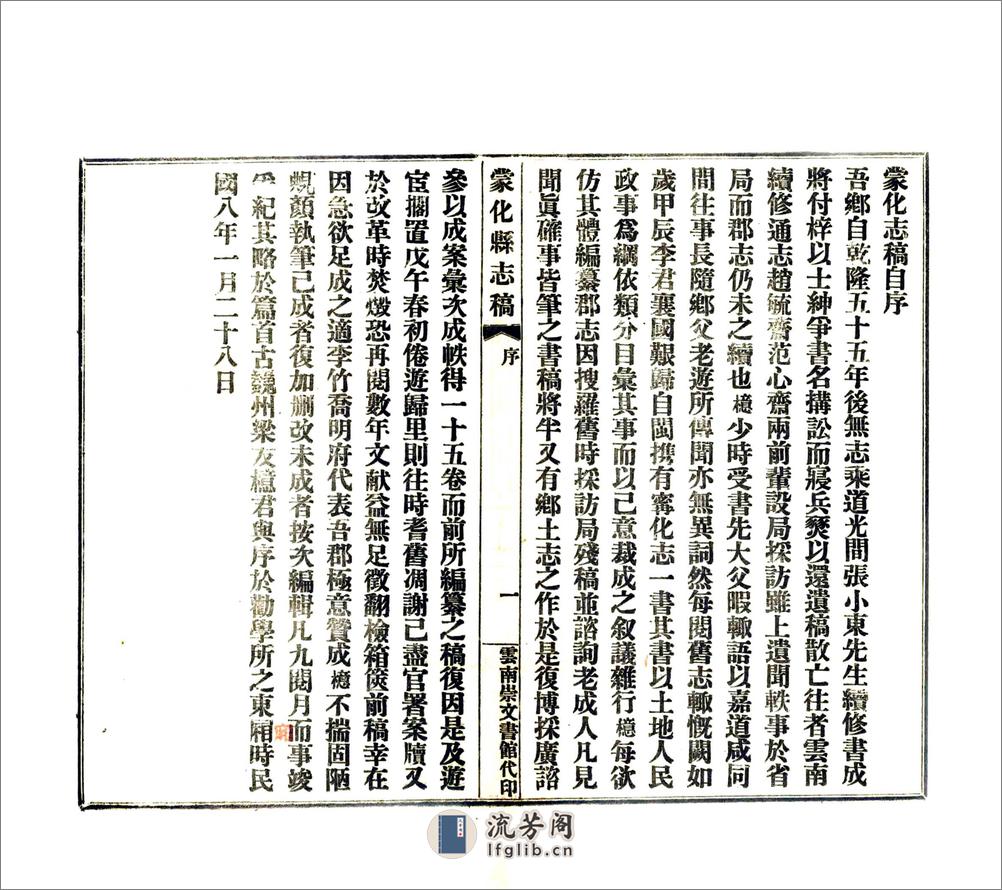 蒙化志稿自序
吾鄉自乾隆五十五年後無志乘道光間張小東先生續修書成
將付梓以士紳爭書名搆訟而寢兵燹以還遺稿散亡往者雲南
續修通志趙毓齋范心齋兩前輩設局採訪雖上遺聞軼事於省
局而郡志仍未之續也檍少時受書先大父暇輙語以嘉道咸同
間往事長隨鄉父老遊所傳聞亦無異詞然每閱舊志輙慨闕如
歲甲辰李君襄國艱歸自閩擕有寗化志一書其書以土地人民
政事爲綱依類分目彙其事而以己意裁成之叙議雜行檍每欲
仿其體編纂郡志因搜羅舊時採訪局殘稿並諮詢老成人凡見
聞眞確事皆筆之書稿將半又有鄉土志之作於是復博採廣諮
蒙化縣志稿
序
一
雲南崇文書館代印
參以成案彙次成帙得一十五卷而前所編纂之稿復因是及遊
宦擱置戊午春初倦遊歸里則往時耆舊凋謝已盡官署案牘又
於改革時焚燬恐再閱數年文献益無足徵翻檢箱篋前稿幸在
因急欲足成之適李竹喬明府代表吾郡極意贊成檍不揣固陋
覥顏執筆已成者復加刪改未成者按次編輯凡九閱月而事竣
爰紀其略於篇首古巍州梁友檍君與序於勸學所之東廂時民
國八年一月二十八日
流芳阁
lfglib.cn